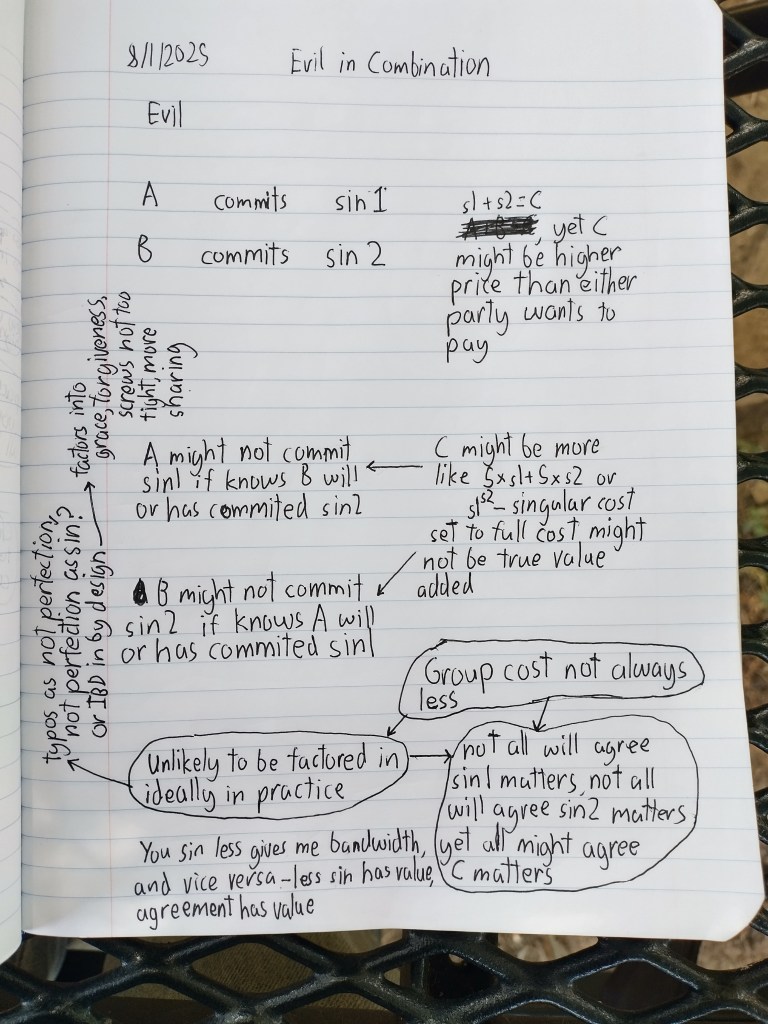 8/1/2025 Evil in Combination
Evil
A commits sin 1
B commits sin 2
s1 + s2 = C
, yet C
might be higher
price than either
party wants to
pay
C might be more
like 5xs1+5xs2 or
s1^s2 – singular cost
set to full cost might
not be true value
added
A might not commit
sin1 if knows B will
or has commited sin2
B might not commit
sin2 if knows A will
or has commited sin1
Group cost not always
less
Unlikely to be factored in
ideally in practice
not all will agree
sin1 matters, not all
will agree sin2 matters
yet all might agree
C matters
typos as not perfection,
not perfection as sin?
or IBD in by design
factors into
grace, forgiveness,
screws not too
tight, more
sharing
You sin less gives me bandwidth,
and vice versa – less sin has value,
agreement has value